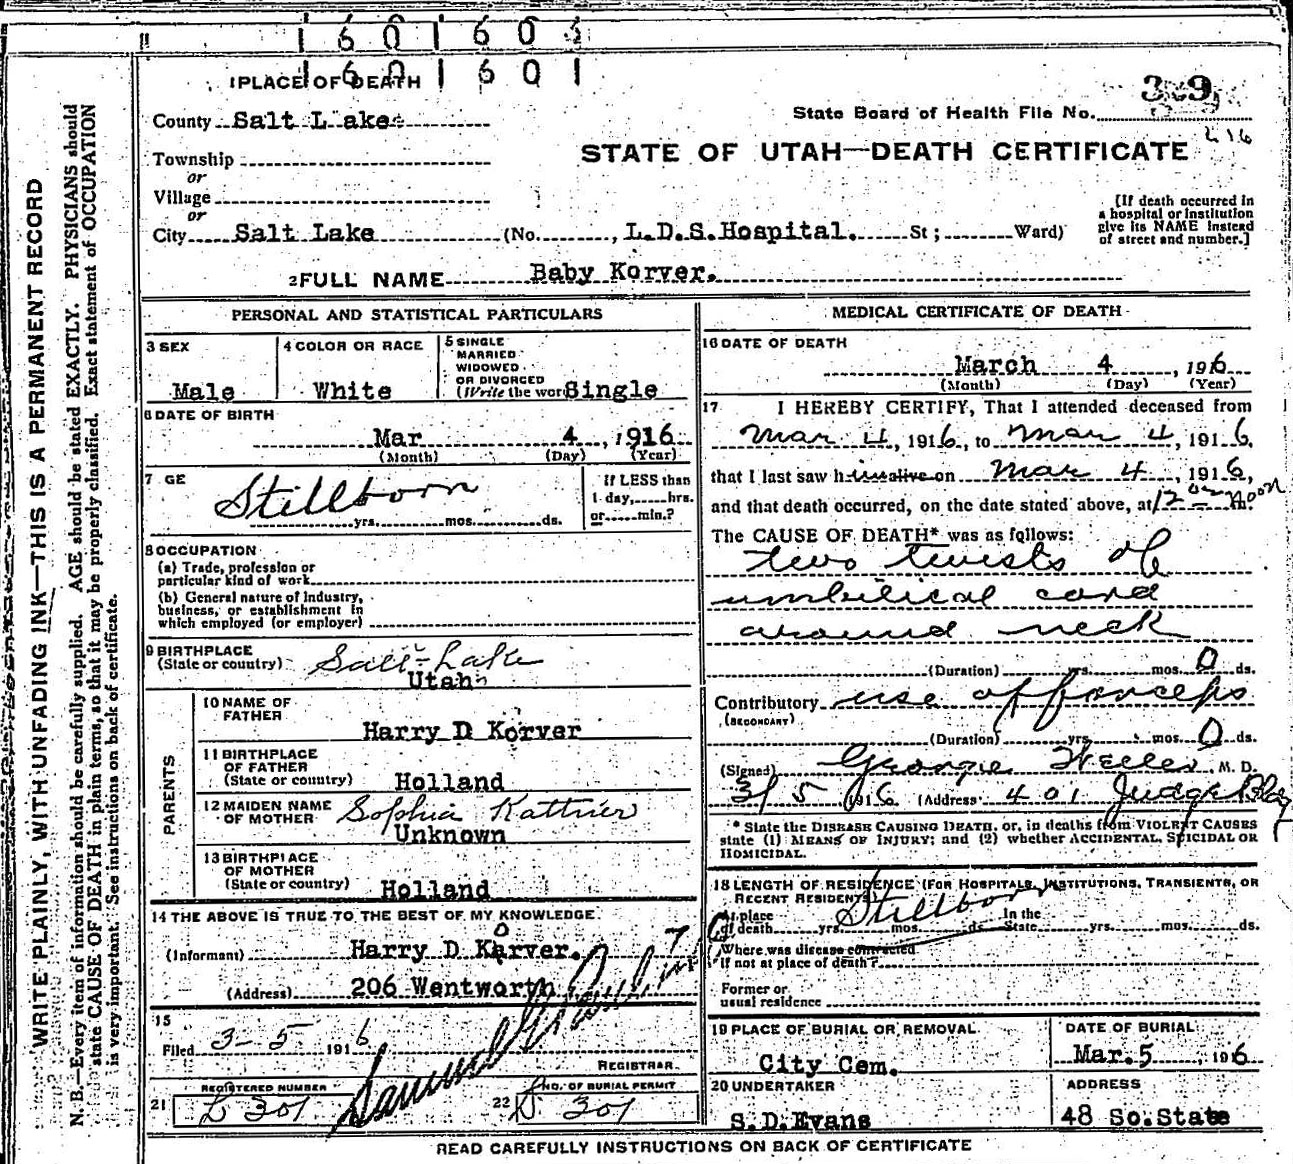 1 6 0 1 6 0
1 6 0 1 6 0 1
1 PLACE OF DEATH
329
State Board of Health File No.
County Salt Lake
L 16
STATE OF UTAH—DEATH CERTIFICATE
Township
or
Village
or
City Salt Lake (No. , L.D.S.Hospital. St ; Ward)
[If death occurred in
a hospital or institution
give its NAME instead
of street and number.]
2 FULL NAME Baby Korver.
PERSONAL AND STATISTICAL PARTICULARS
3 SEX
Male
4 COLOR OR RACE
White
5 SINGLE
MARRIED
WIDOWED
OR DIVORCED
(Write the wor Single
6 DATE OF BIRTH
Mar 4 , 1916
(Month) (Day) (Year)
7 GE
Stillborn
yrs. mos. ds.
If LESS than
1 day, hrs.
or min.?
8 OCCUPATION
(a) Trade, profession or
particular kind of work
(b) General nature of industry,
business, or establishment in
which employed (or employer)
9 BIRTHPLACE
(State or country) Salt Lake
Utah
PARENTS
10 NAME OF
FATHER
Harry D Korver
11 BIRTHPLACE
OF FATHER
(State or country) Holland
12 MAIDEN NAME
OF MOTHER Sophia Kattner
Unknown
13 BIRTHPLACE
OF MOTHER
(State or country) Holland
14 THE ABOVE IS TRUE TO THE BEST OF MY KNOWLEDGE
o
(Informant) Harry D Karver.
(Address) 206 Wentworth
15
Filed 3-5 1916
REGISTRAR.
REGISTERED NUMBER
21 D 301
NO. OF BURIAL PERMIT
22 D 301
MEDICAL CERTIFICATE OF DEATH
16 DATE OF DEATH
March 4 , 1916
(Month) (Day) (Year)
17 I HEREBY CERTIFY, That I attended deceased from
Mar 4, 1916, to Mar 4, 1916,
that I last saw him alive on Mar 4, 1916,
and that death occurred, on the date stated above, at 12 noon m.
The CAUSE OF DEATH* was as follows:
two twists of
umbilical cord
around neck
(Duration) yrs. mos. 0 ds.
Contributory use of forceps
(SECONDARY)
(Duration) yrs. mos. 0 ds.
(Signed) George M. D.
3/5 1916 (Address 401 Judge Bldg
* State the DISEASE CAUSING DEATH, or, in deaths from VIOLENT CAUSES
state (1) MEANS OF INJURY; and (2) whether ACCIDENTAL, SUICIDAL OR
HOMICIDAL.
18 LENGTH OF RESIDENCE (FOR HOSPITALS, INSTITUTIONS, TRANSIENTS, OR
RECENT RESIDENTS)
Stillborn
At place
of death yrs. mos. ds. In the
State yrs. mos. ds.
Where was disease contracted
If not at place of death?
Former or
usual residence
19 PLACE OF BURIAL OR REMOVAL
City Cem.
DATE OF BURIAL
Mar. 5 , 1916
20 UNDERTAKER
S.D.Evans
ADDRESS
48 So.State
READ CAREFULLY INSTRUCTIONS ON BACK OF CERTIFICATE
WRITE PLAINLY, WITH UNFADING INK—THIS IS A PERMANENT RECORD
N. B.—Every item of information should be carefully supplied. AGE should be stated EXACTLY. PHYSICIANS should
state CAUSE OF DEATH in plain terms, so that it may be properly classified. Exact statement of OCCUPATION
is very important. See instructions on back of certificate.